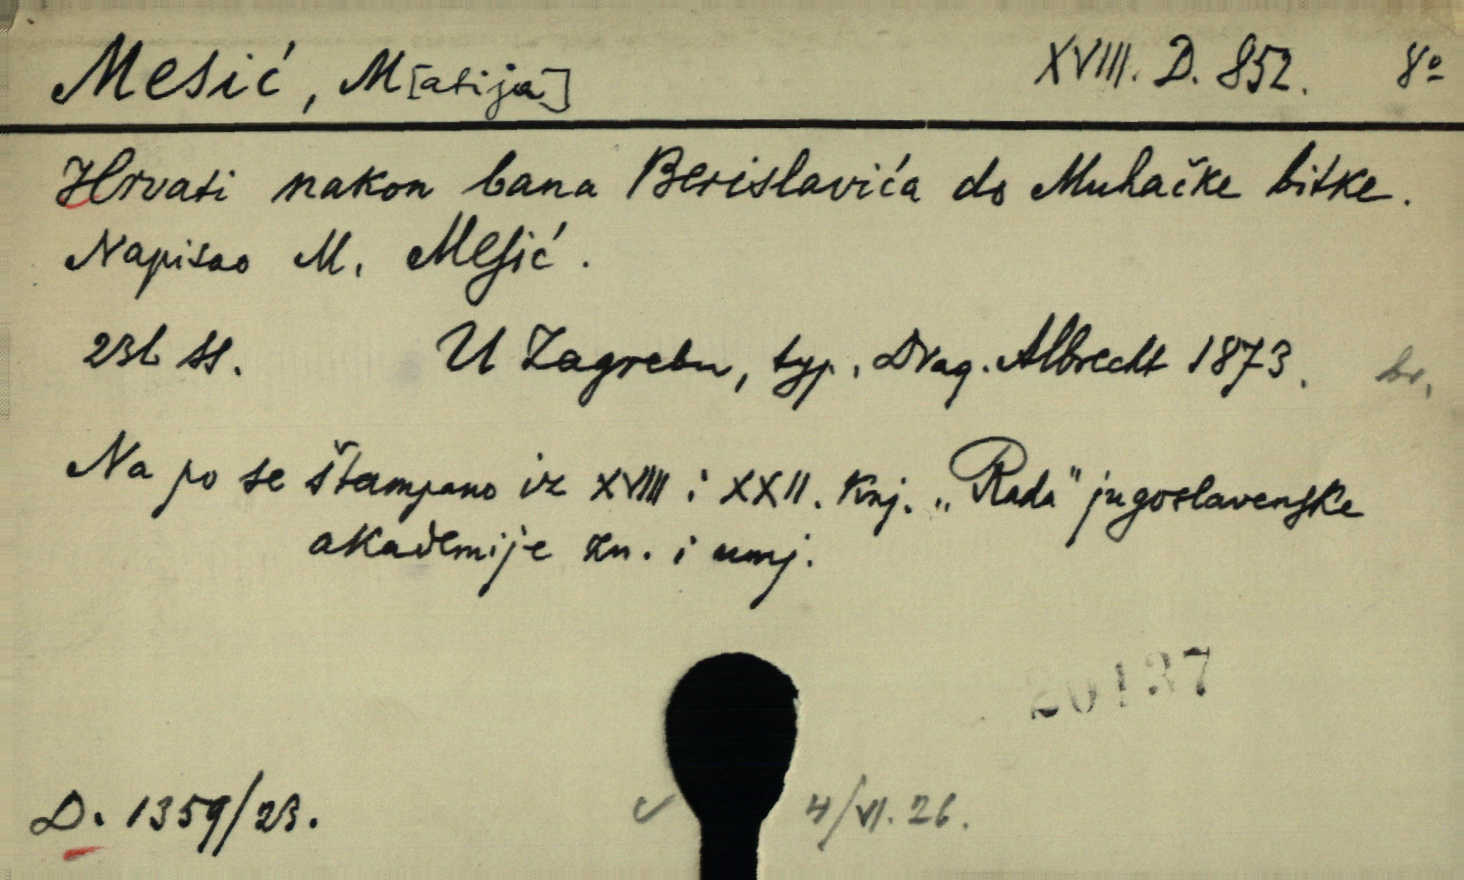 Mesić, M[atija] XVIII. D. 852. 8º
Hrvati nakon bana Berislavića do Muhačke bitke.
Napisao M. Mesić.
231 ss. U Zagrebu, typ. Drag. Albrecht 1873. br.
Na po se štampano iz XVIII i XXII. knj. „Rada" jugoslavenske
akademije zn. i umj.
20137
D. 1359/23. ✓ 4/VI. 26.